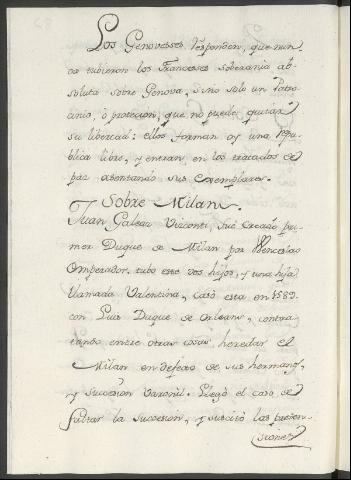 Los Genovesses responden, que nun-
ca tubieron los Franceses soberania ab-
soluta sobre Genova, sino solo un Patro-
cinio, ò proteccion, que no puede quitar
su libertad: ellos forman oy una Repu-
blica libre, y entran en los tratados de
paz asentando sus exemplares.
Sobre Milan.
Juan Galeas Visconti, fué creado pri-
mer Duque de Milan por Wenceslao
Emperador, tubo este dos hijos, y una hija
llamada Valentina, casó esta en 1389.
con Luis Duque de Orleans, contra-
tando entre otras cosas, heredar el
Milan en defecto de sus hermanos,
y succesion Varonil. Llegó el caso de
faltar la succesion, y suscitó las preten-
siones